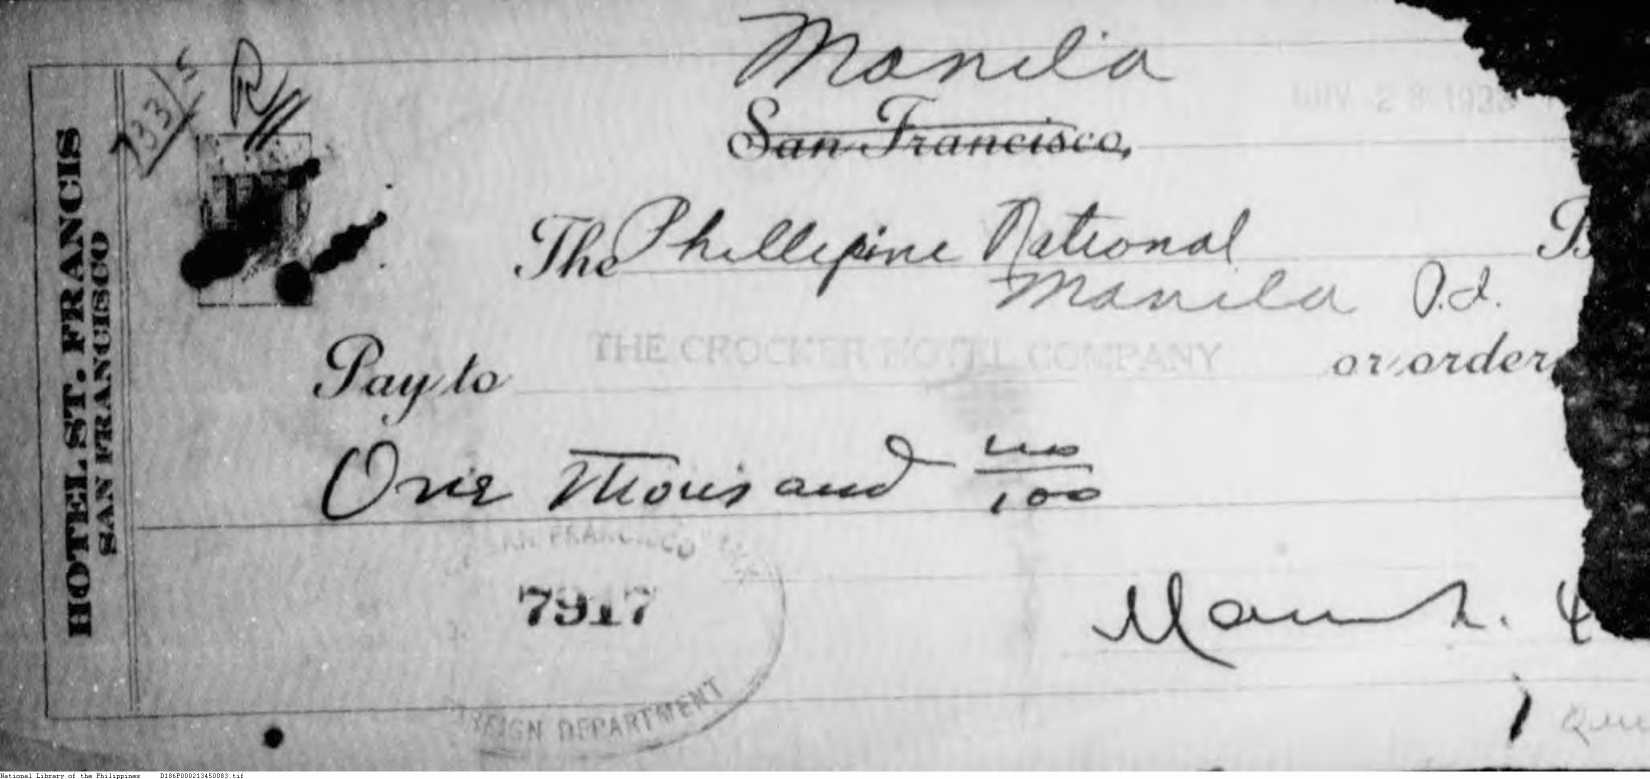 HOTEL ST. FRANCIS
SAN FRANCISCO
733/5
R
Manila
San Francisco,
NOV 28 1933
The Phillipine National B
Manila P.I.
Pay to THE CROCKER HOTEL COMPANY or order
One Thousand no/100
SAN FRANCISCO
7917
FOREIGN DEPARTMENT
Manuel L. Q
National Library of the Philippines D186P000213450083.tif